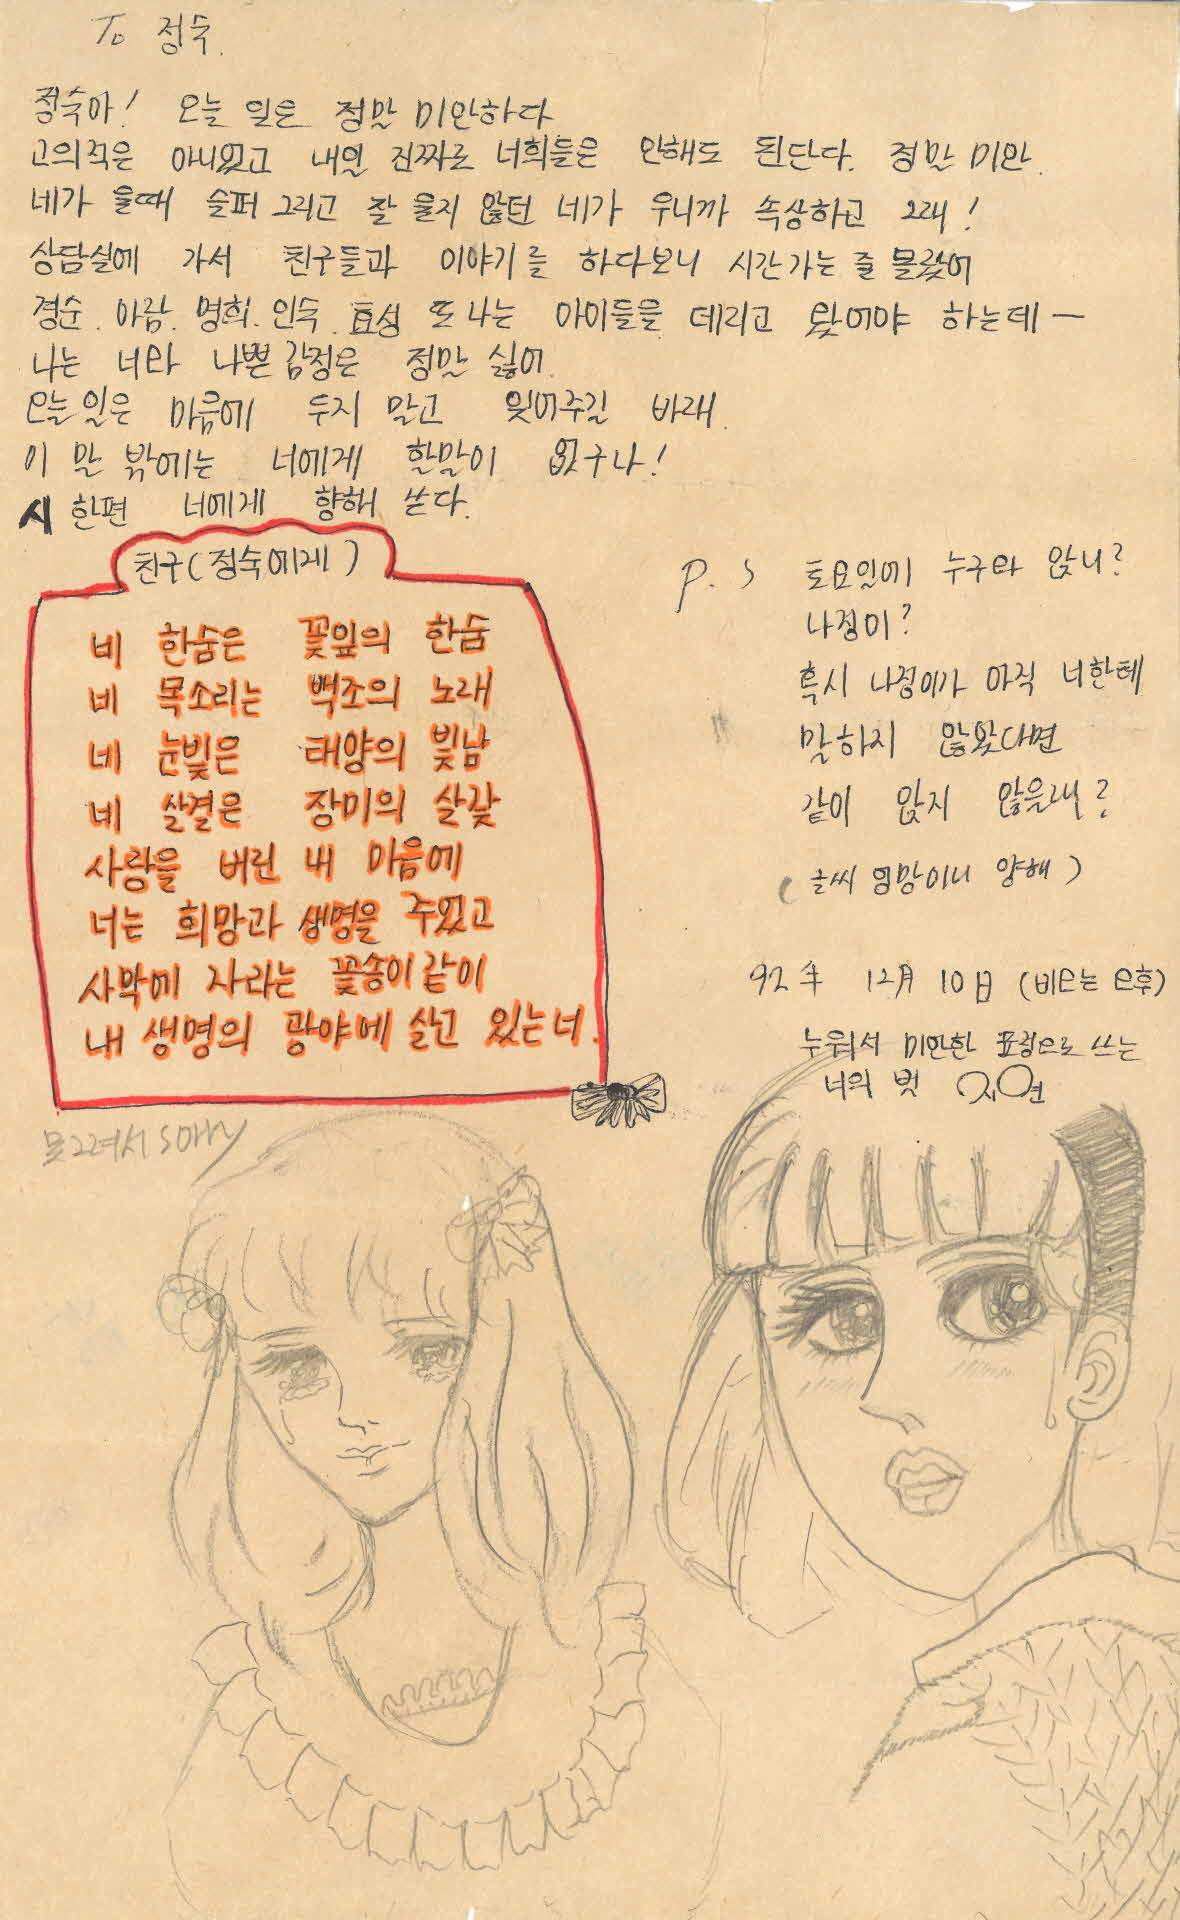 To 정숙.
정숙아! 오늘 일은 정말 미안하다
고의적은 아니었고 내일 진짜로 너희들은 안해도 된단다. 정말 미안.
네가 울때 슬퍼 그리고 잘 울지 않던 네가 우니까 속상하고 그래!
상담실에 가서 친구들과 이야기를 하다보니 시간가는 줄 몰랐어
경순. 아람. 명희. 인숙. 효성 또 나는 아이들을 데리고 왔어야 하는데 —
나는 너와 나쁜 감정은 정말 싫어.
오늘 일은 마음에 두지 말고 잊어주길 바래.
이 말 밖에는 너에게 할말이 없구나!
시 한편 너에게 향해 쓴다.
친구(정숙에게)
네 한숨은 꽃잎의 한숨
네 목소리는 백조의 노래
네 눈빛은 태양의 빛남
네 살결은 장미의 살갗
사랑을 버린 내 마음에
너는 희망과 생명을 주었고
사막에 자라는 꽃송이같이
내 생명의 광야에 살고 있는너.
P. S 토요일에 누구와 앉니?
나정이?
혹시 나정이가 아직 너한테
말하지 않았다면
같이 앉지 않을래?
(글씨 엉망이니 양해)
92年 12月 10日 (비오는 오후)
누워서 미안한 표정으로 쓰는
너의 벗 지연
못그려서 sorry